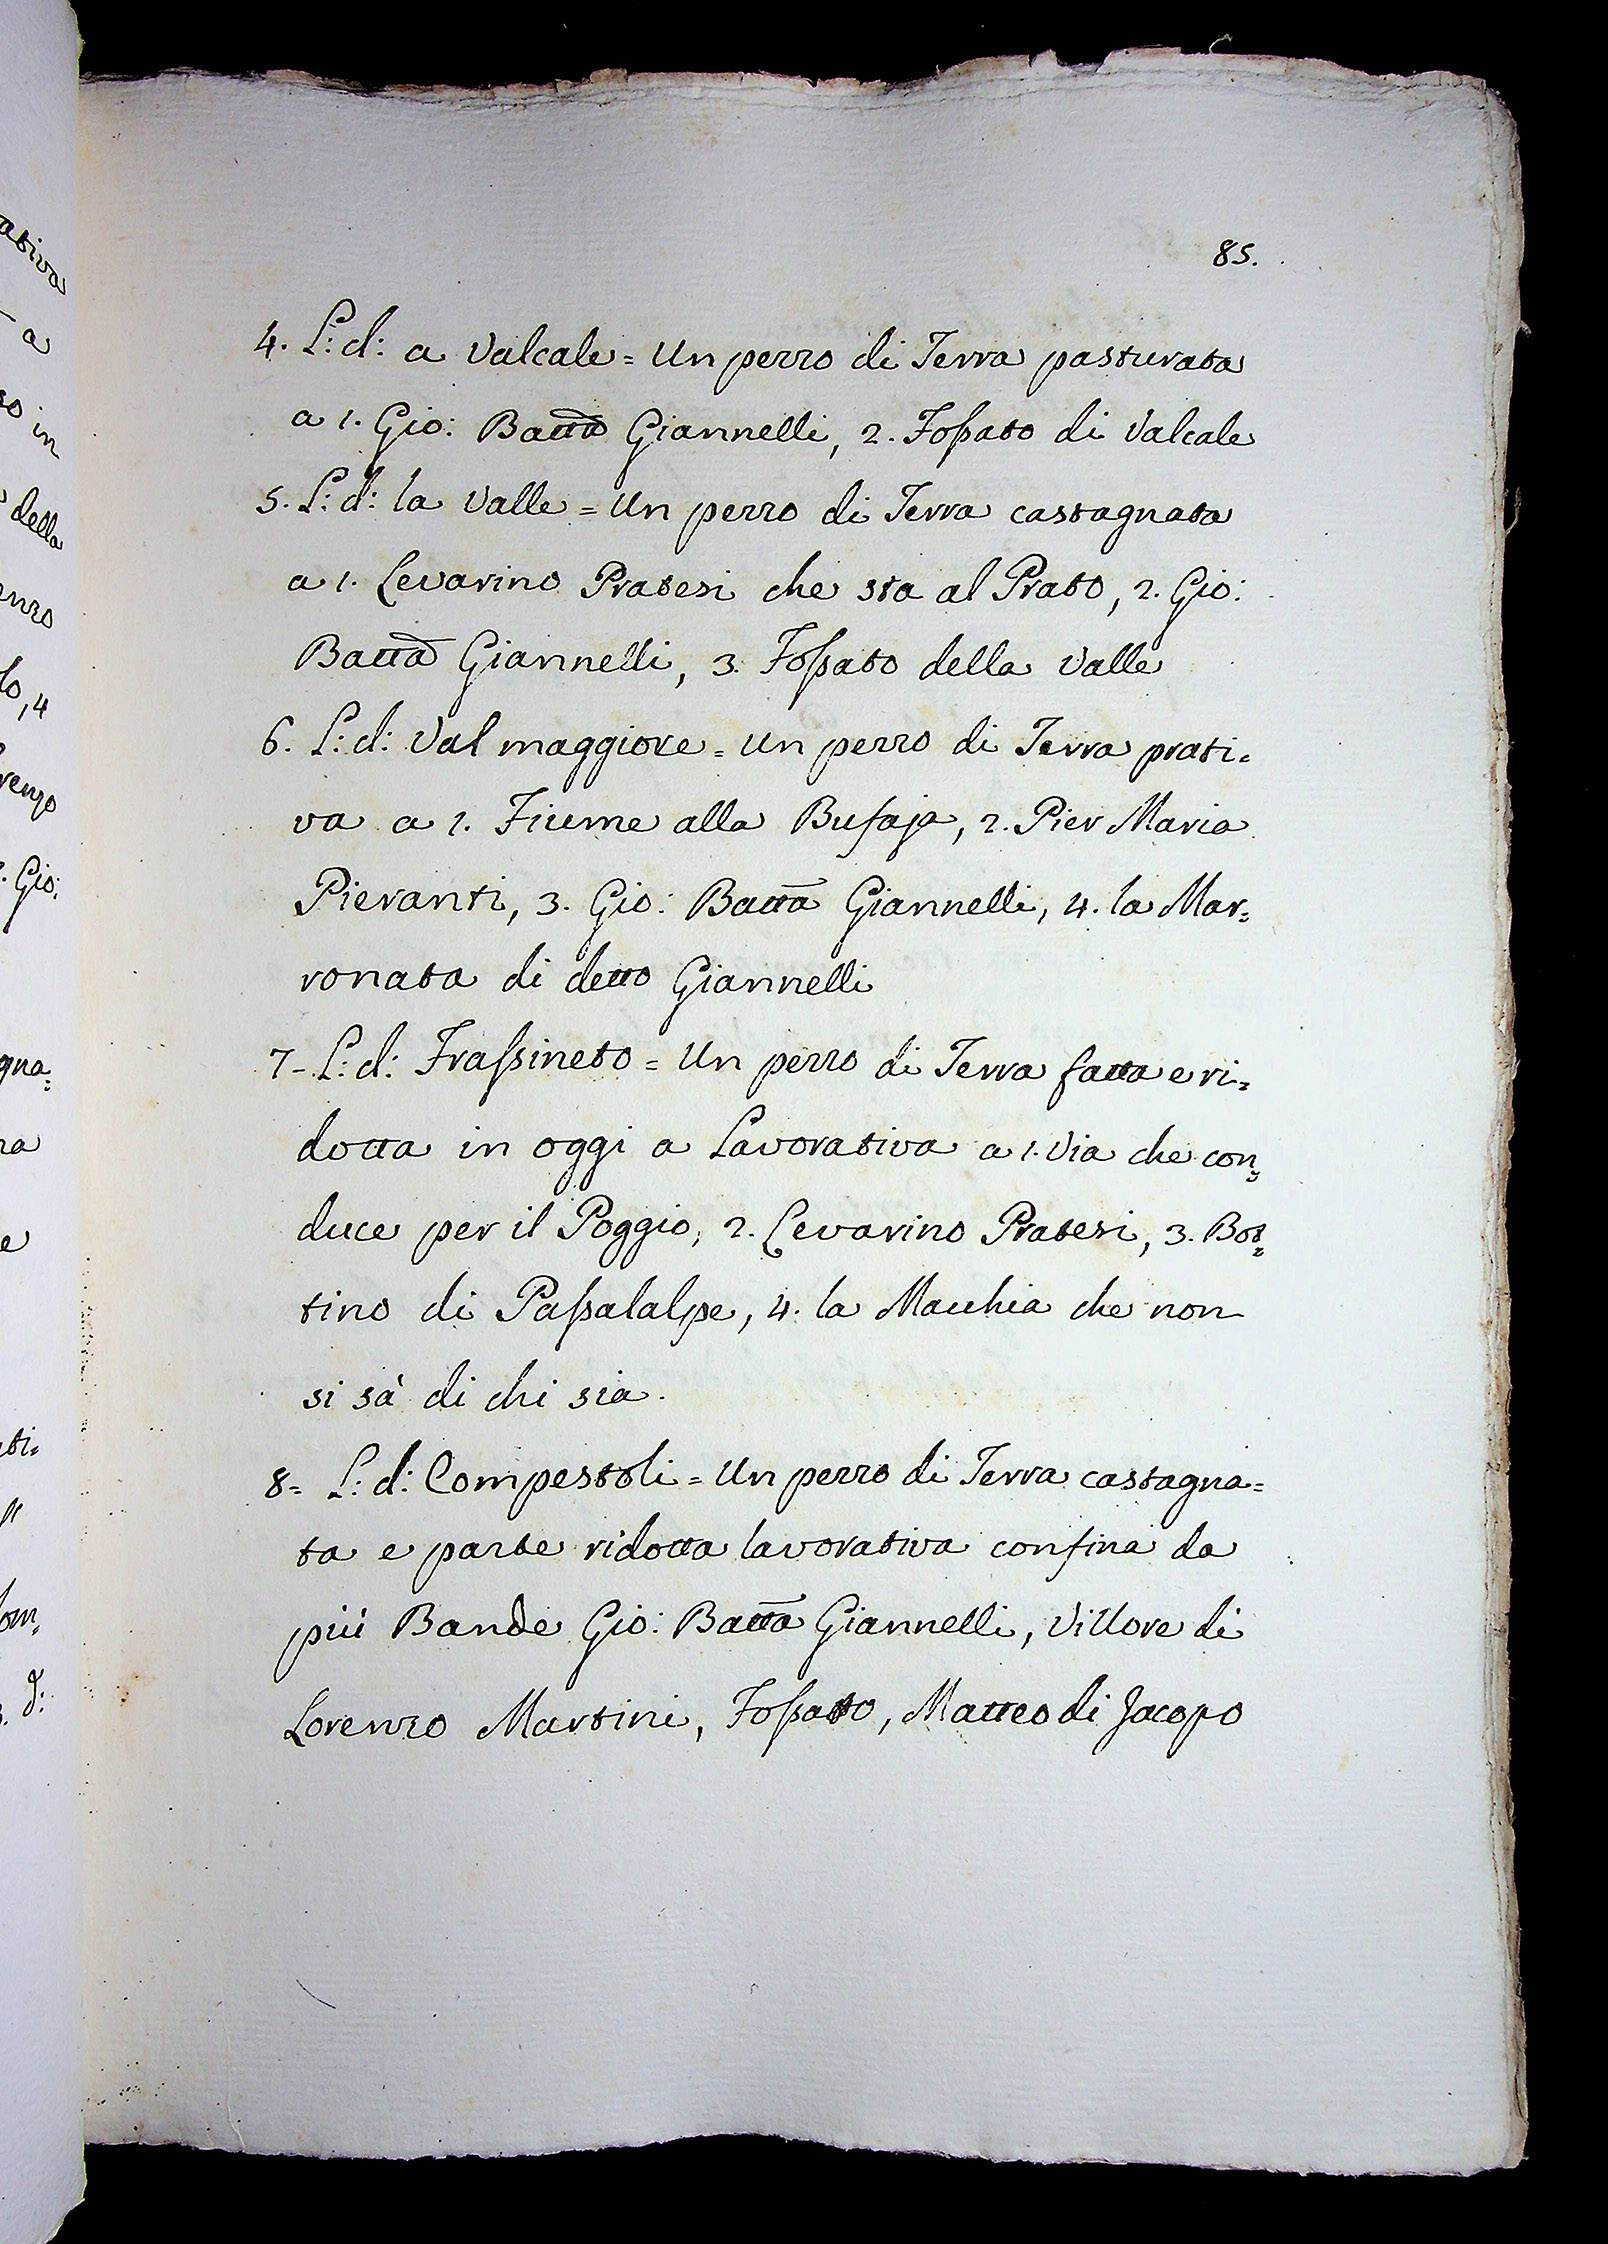 ativa
- a
so in
della
enzo
lo, 4
renzo
. Gio:
gna=
na
e
ti=
85.
4. L: d: a Valcale = Un pezzo di Terra pasturata
a 1. Gio: Batta Giannelli, 2. Foßato di Valcale
5. L: d: la Valle = Un pezzo di Terra castagnata
a 1. Cevarino Pratesi che sta al Prato, 2. Gio:
Batta Giannelli, 3. Foßato della Valle
6. L: d: Val maggiore = Un pezzo di Terra prati=
va a 1. Fiume alla Bufaja, 2. Pier Maria
Pieranti, 3. Gio: Batta Giannelli, 4. la Mar=
ronata di detto Giannelli
7- L: d: Fraßineto = Un pezzo di Terra fatta e ri=
dotta in oggi a Lavorativa a 1. Via che con=
duce per il Poggio, 2. Cevarino Pratesi, 3. Bot=
tino di Paßalalpe, 4. la Macchia che non
si sà di chi sia.
8= L: d: Compestoli = Un pezzo di Terra castagna=
ta e parte ridotta lavorativa confina da
più Bande Gio: Batta Giannelli, Vittore di
Lorenzo Martini, Foßatto, Matteo di Jacopo